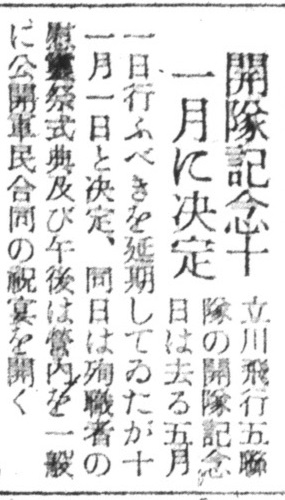 開隊記念十
一月に決定
立川飛行五聯
隊の開隊記念
日は去る五月
一日行ふべきを延期してゐたが十
一月一日と決定、同日は殉職者の
慰霊祭式典及び午後は營内を一般
に公開軍民合同の祝宴を開く